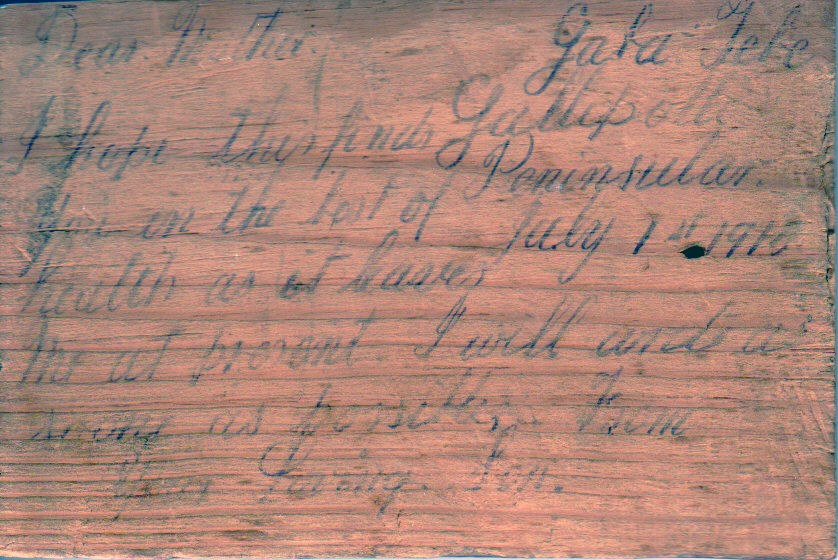 Dear Mother. Gaba Tebe
Gallipoli
I hope this finds
Peninsular.
You in the best of
July 1st 191
health as it leaves
me at present. I will and as
soon as possible. From
Your Loving Son.